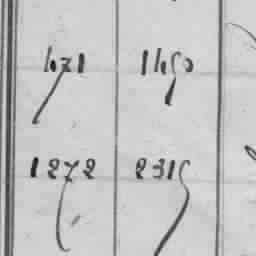 471 1450
1272 2315